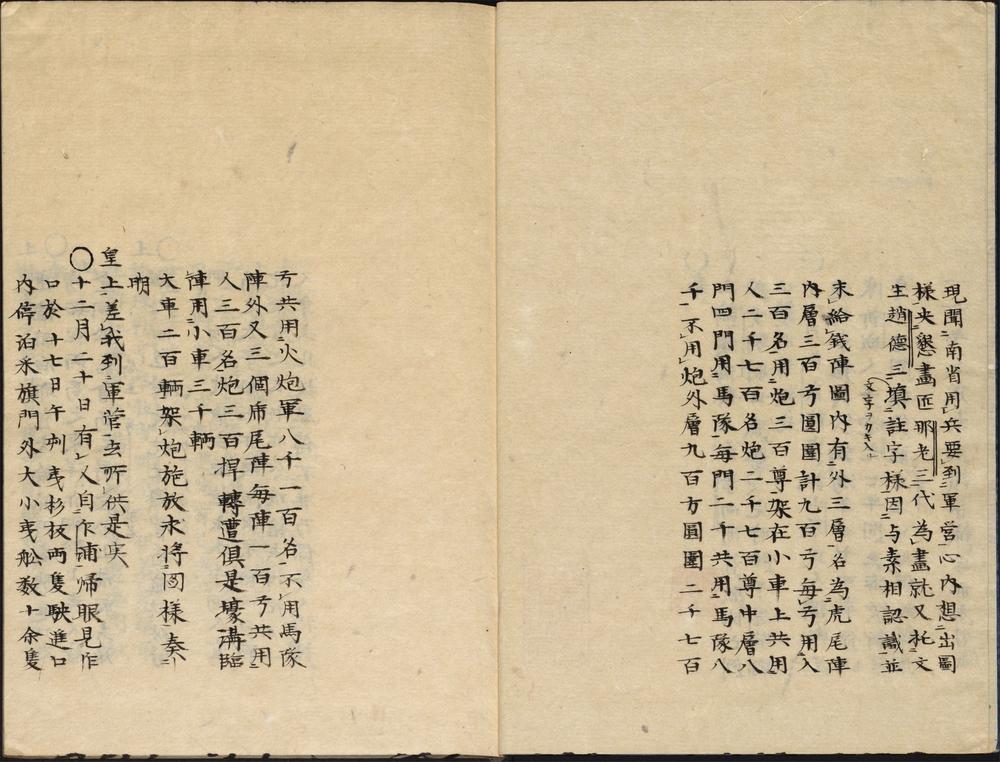 現聞南省用兵要到軍营心内想出圖
樣央懇畫匠那老三代為畫就又托文
生趙德三填註字樣因与素相認識並
文字ヲカキ入
未給錢陣圖内有外三層名為虎尾陣
内層三百亏圓圍計九百亏每亏用人
三百名用炮三百尊架在小車上共用
人二千七百名炮二千七百尊中層八
門四門用馬隊每門二千共用馬隊八
千不用炮外層九百方圓圍二千七百
亏共用火炮軍八千一百名不用馬隊
陣外又三個虎尾陣每陣一百亏共用
人三百名炮三百捍轉遭俱是壕溝臨
陣用小車三千輌
大車二百輌架炮施放求將圖樣奏
明
皇上差我到軍营去所供是实
〇十二月二十日有人自乍浦帰眼見乍
口於十七日午刻夷杉板両隻駛進口
内停泊釆旗門外大小夷舩数十余隻